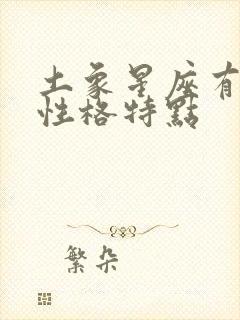 土象星座有
性格特點
繁朵